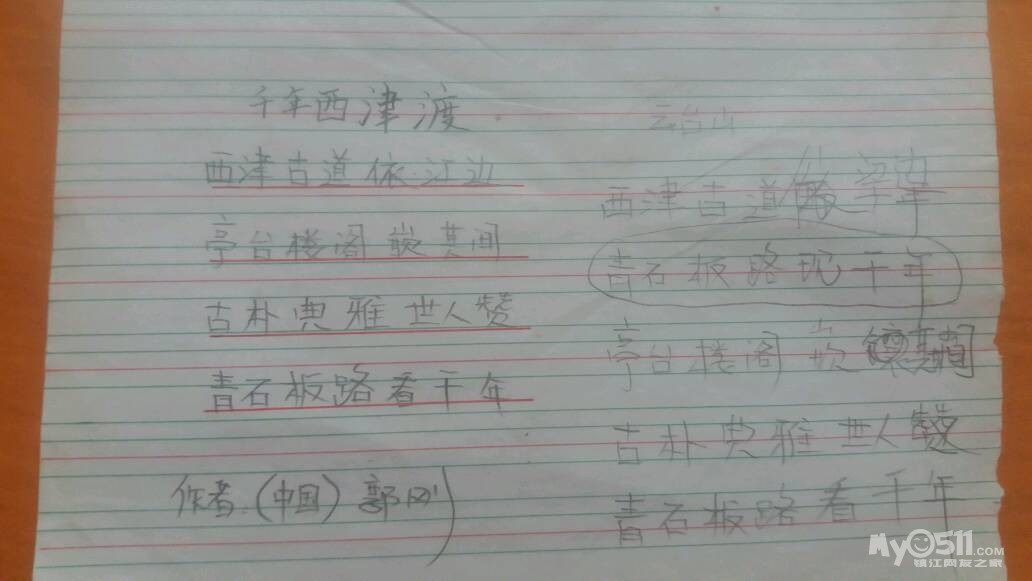 千年西津渡
西津古道依江边
亭台楼阁嵌其间
古朴典雅世人赞
青石板路看千年
作者(中国)郭刚
云台山
西津古道
青石板路现千年
亭台楼阁嵌其间
古朴典雅世人赞
青石板路看千年
My0511.COM
镇江网友之家